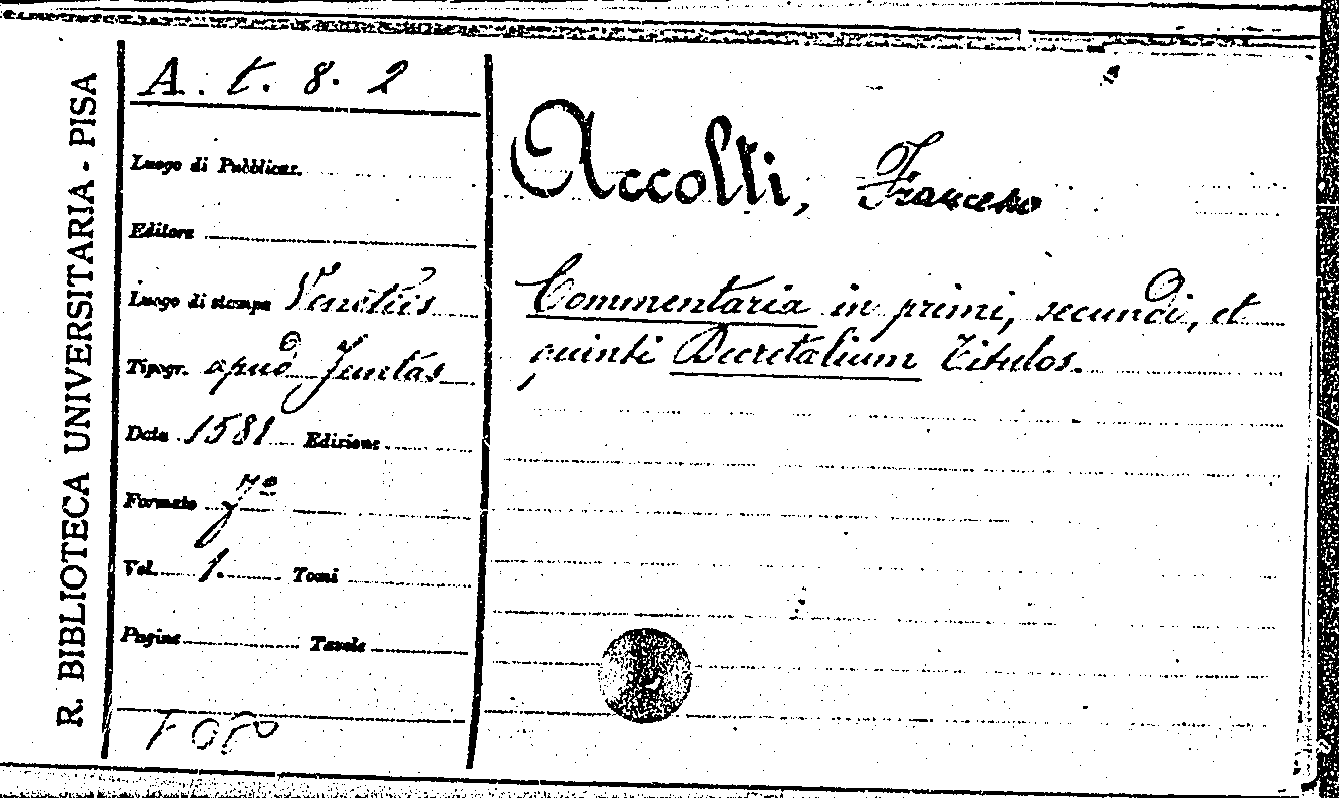 R. BIBLIOTECA UNIVERSITARIA - PISA
A. t. 8. 2
Luogo di Pubblicaz.
Editore
Luogo di stampa Venetiis
Tipogr. apud Juntas
Data 1581 Edizione
Formato fº
Vol. 1. Tomi
Pagine Tavole
Accolti, Francesco
Commentaria in primi, secundi, et
quinti Decretalium Titulos.